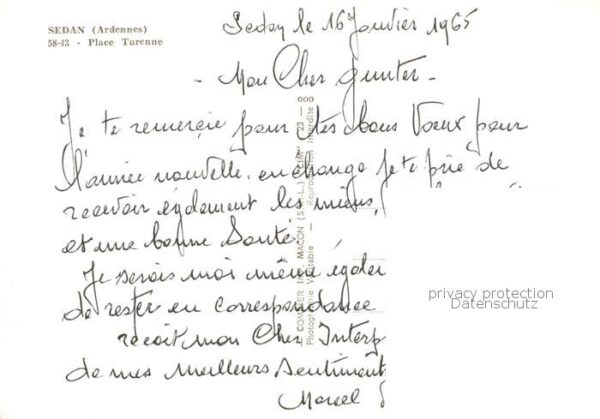 SEDAN (Ardennes)
58-43 - Place Turenne
Sedan le 16 Janvier 1965
- Mon Cher Gunter -
Je te remercie pour tes bons Vœux pour
l'année nouvelle, en échange je te prie de
recevoir également les miens,
et une bonne Santé.
Je serais moi même égale
de rester en correspondance
reçoit mon Cher
de mes Meilleurs Sentiment
Marcel
COMBIER IMP. MACON
Photographie Véritable - Reproduction Interdite
privacy protection
Datenschutz